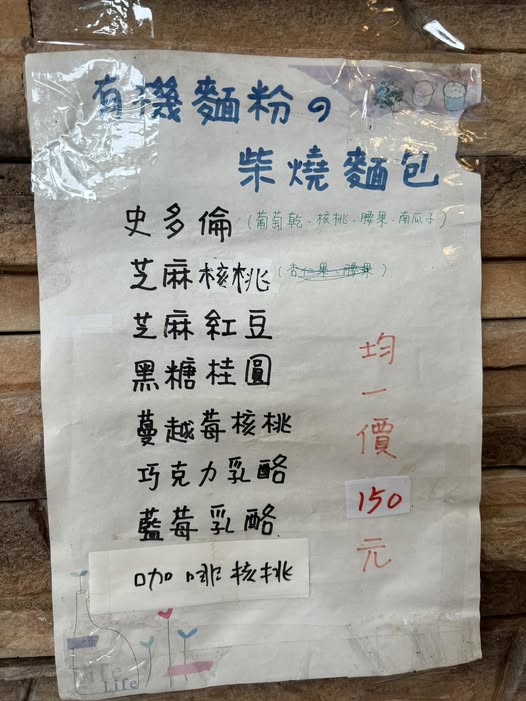 有機麵粉の
柴燒麵包
史多倫(葡萄乾、核桃、腰果、南瓜子)
芝麻核桃(杏仁果、腰果)
芝麻紅豆
黑糖桂圓
蔓越莓核桃
巧克力乳酪
藍莓乳酪
咖啡核桃
均一價
150
元
Life
Life